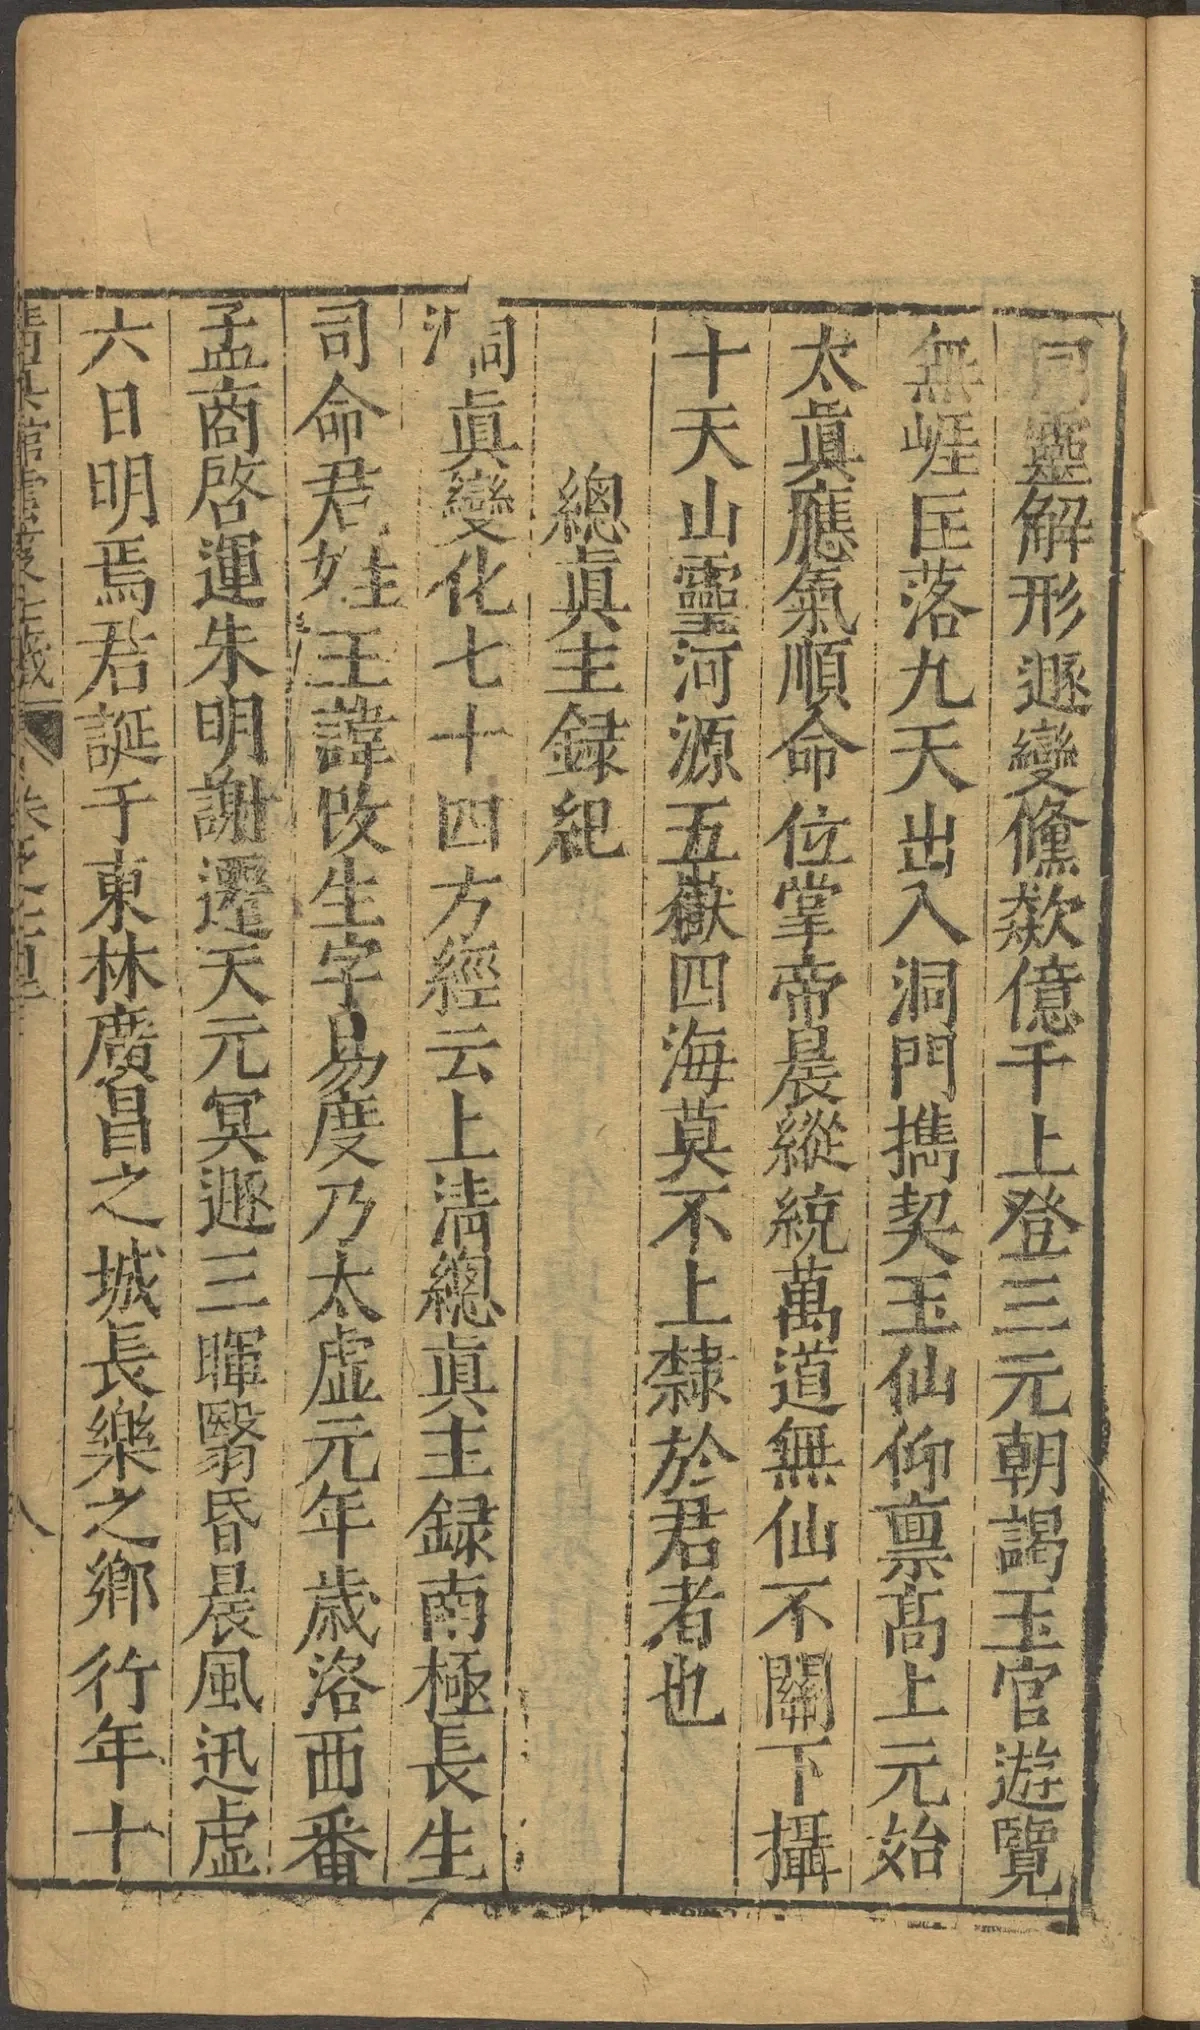 同靈解形遯變儵欻億千上登三元朝謁玉官遊覽
無崕匡落九天出入洞門攜契玉仙仰禀高上元始
太眞應氣順命位掌帝晨縱統萬道無仙不關下攝
十天山靈河源五嶽四海莫不上隸於君者也
總眞主録紀
洞眞變化七十四方經云上清總眞主録南極長生
司命君姓王諱改生字易度乃太虛元年歲洛西番
孟商啓運朱明謝遷天元冥遯三暉翳昏晨風迅虛
六日明焉君誕于東林廣昌之城長樂之鄉行年十
清眞館雲笈七籤 卷之 八